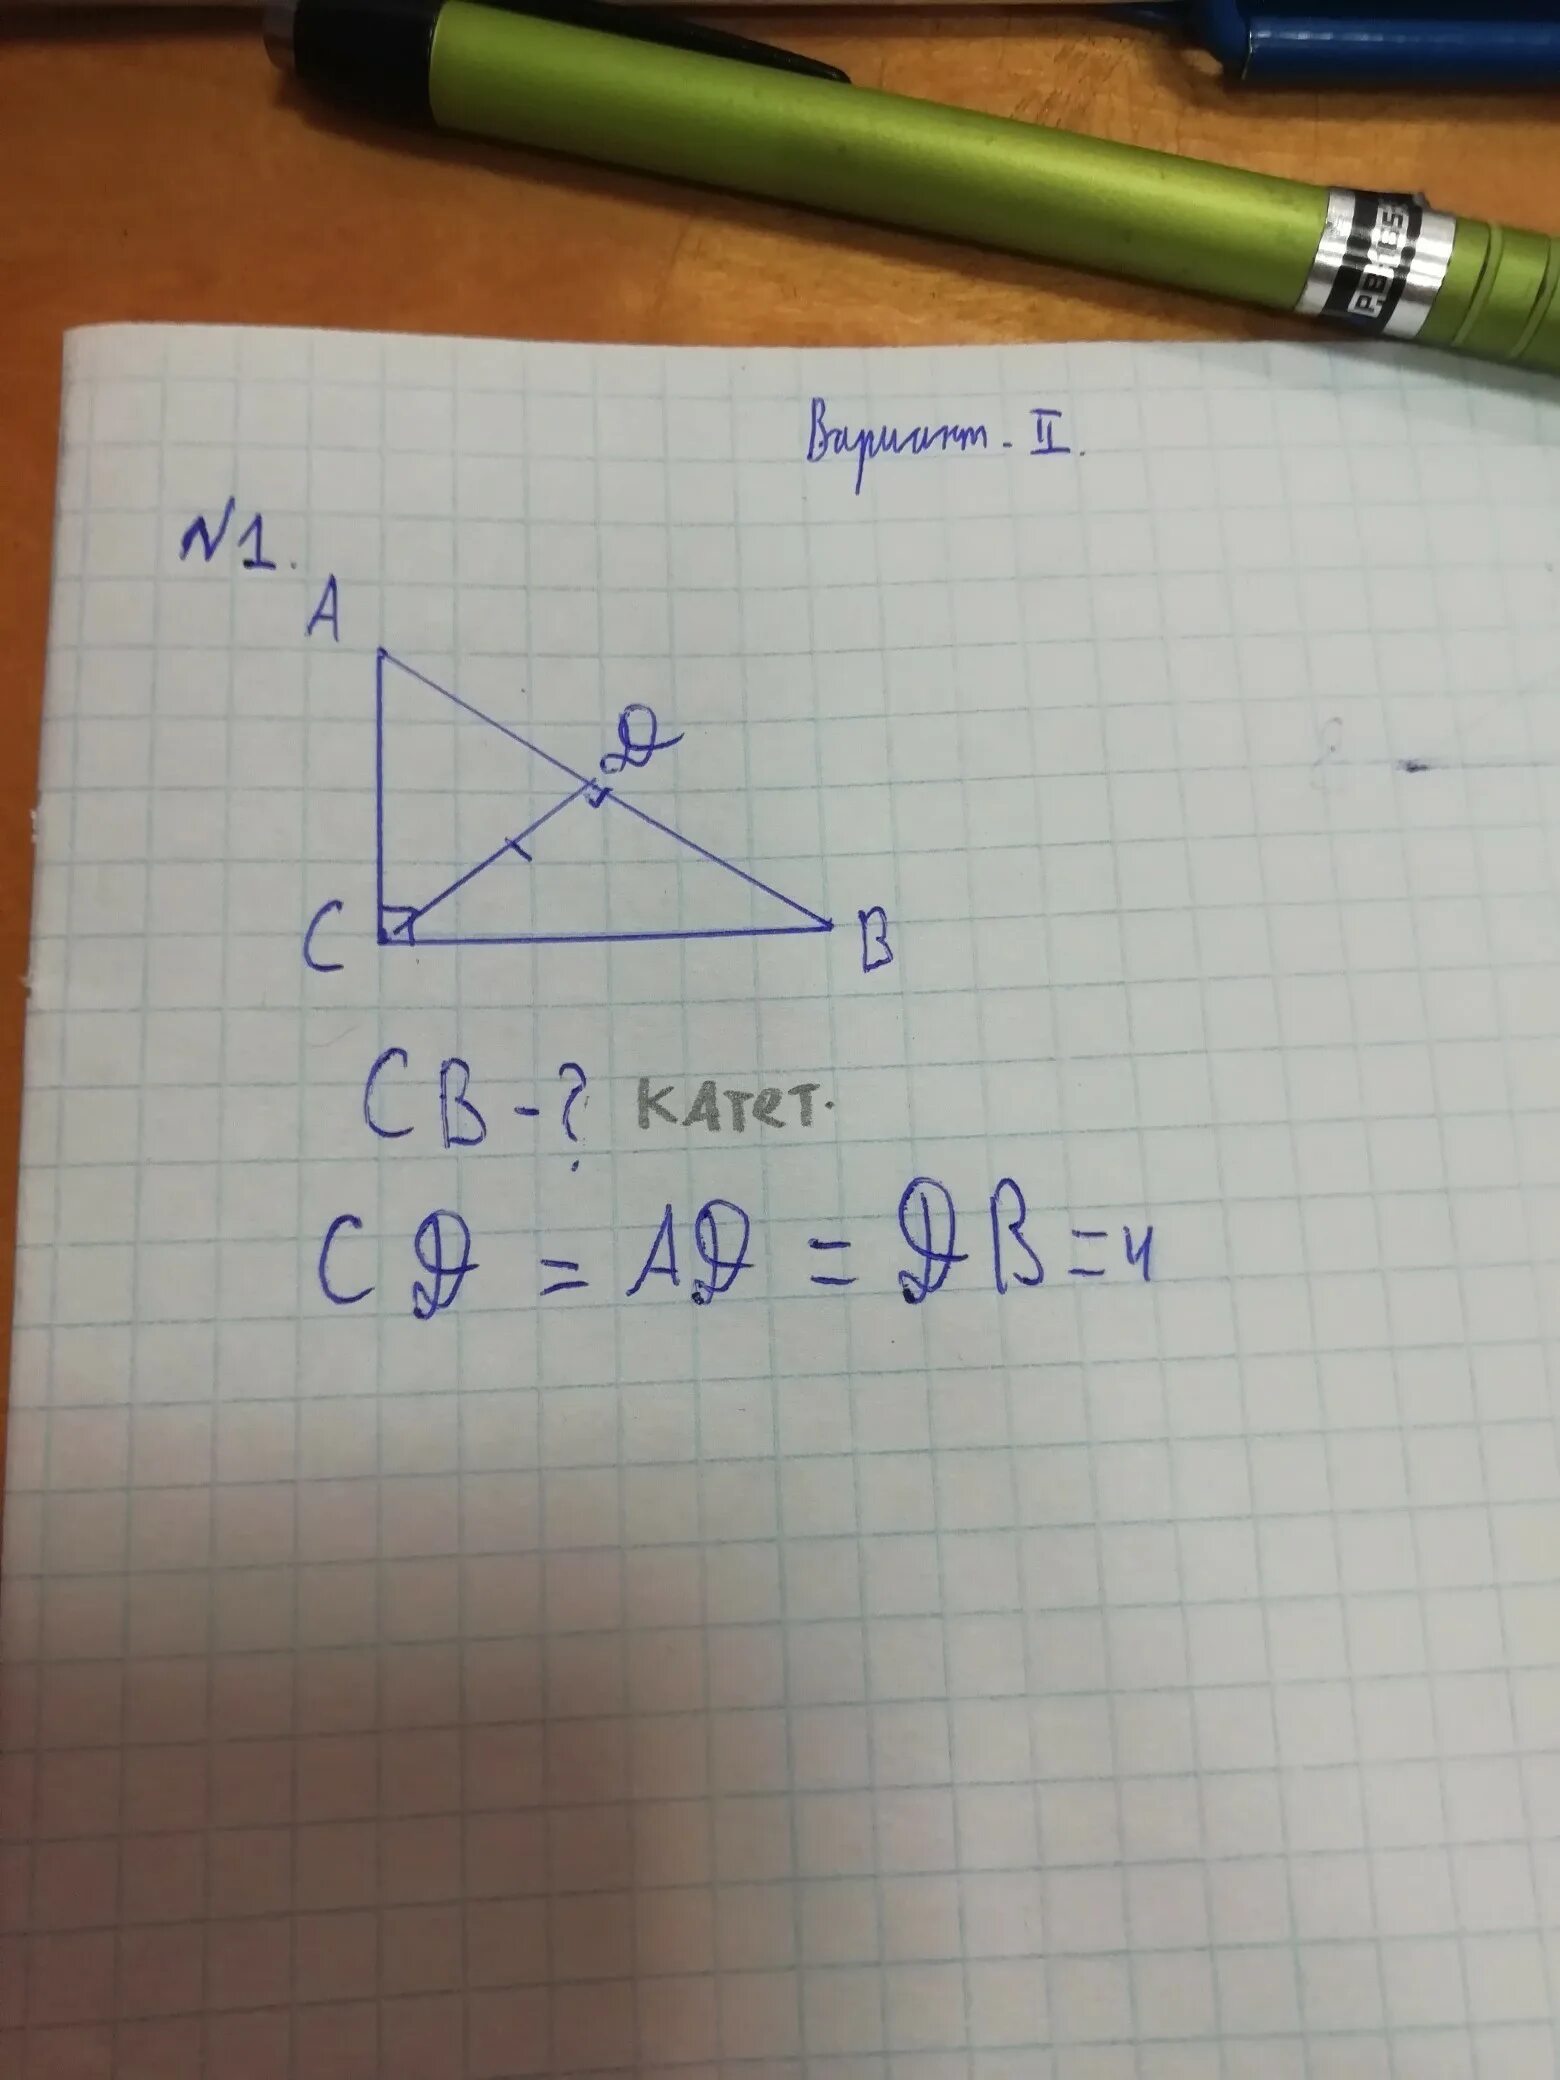 Вариант - II.
N1.
A
D
C
B
CB-? КАТЕТ.
CD = AD = DB = 4